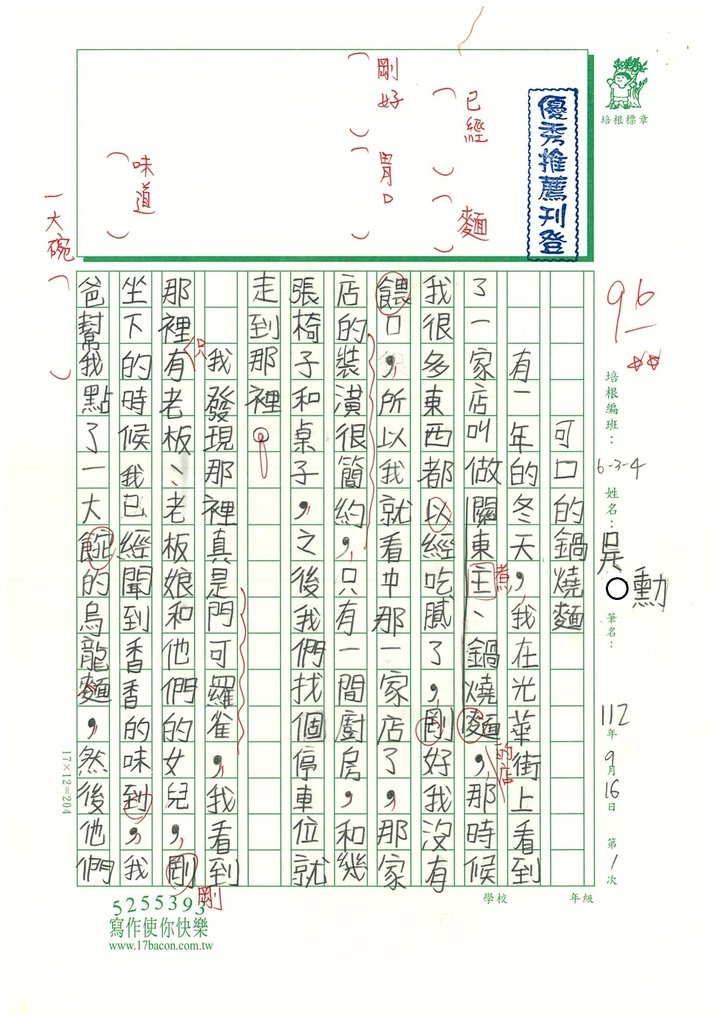 培根標章
優秀推薦刊登
已經
麵
剛好
胃口
味道
一大碗
96
培根編班：6-3-4
姓名：吳○勳
筆名：
112年9月16日 第1次
可口的鍋燒麵
有一年的冬天，我在光華街上看到
了一家店叫做關東主、鍋燒麵，那時候
煮
的店
我很多東西都以經吃膩了，剛好我沒有
餵口，所以我就看中那一家店了，那家
店的裝潢很簡約，只有一間廚房，和幾
張椅子和桌子，之後我們找個停車位就
走到那裡。
我發現那裡真是門可羅雀，我看到
只
那裡有老板、老板娘和他們的女兒，剛
剛
坐下的時候我已經聞到香香的味到，我
爸幫我點了一大的烏龍麵，然後他們
17×12=204
5255393
寫作使你快樂
www.17bacon.com.tw
學校
年級